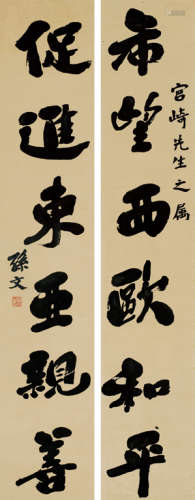 宫崎先生之属
希望西欧和平
促進東亜親善
孫文